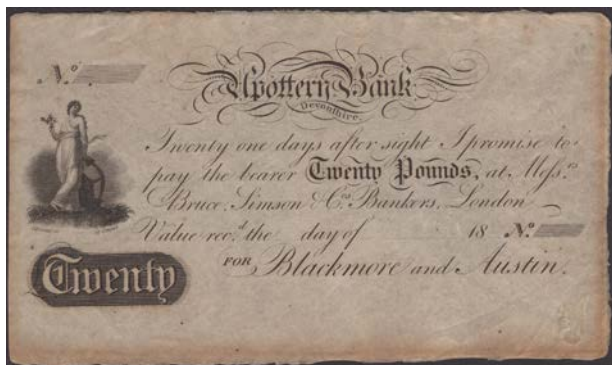 No.
Upottery Bank
Devonshire.
Twenty one days after sight I promise to
pay the bearer Twenty Pounds, at Messrs.
Bruce, Simson & Cos. Bankers, London
Value recd. the day of 18 No.
Twenty FOR Blackmore and Austin.